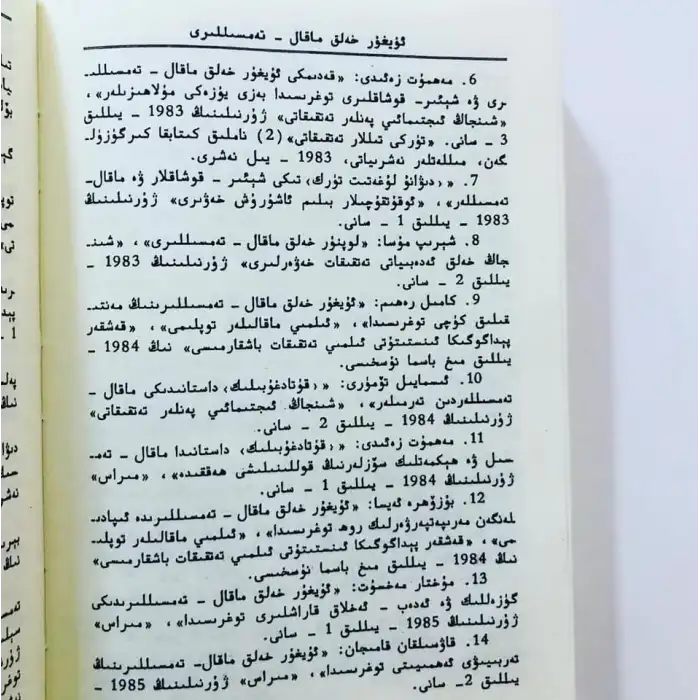 ئۇيغۇر خەلق ماقال – تەمسىللىرى
6. مەھمۇت زەئىدى: «قەدىمكى ئۇيغۇر خەلق ماقال – تەمسىللى‍
رى ۋە شېئىر– قوشاقلىرى توغرىسىدا بەزى يۈزەكى مۇلاھىزىلەر»،
«شىنجاڭ ئىجتىمائىي پەنلەر تەتقىقاتى» ژۇرنىلىنىڭ 1983 – يىللىق
3 – سانى. «تۈركى تىللار تەتقىقاتى» (2) ناملىق كىتابقا كىرگۈزۈل‍
گەن، مىللەتلەر نەشرىياتى، 1983 – يىل نەشرى.
7. «‹دىۋانۇ لۇغەتىت تۈرك› تىكى شېئىر – قوشاقلار ۋە ماقال–
تەمسىللەر»، «ئوقۇتقۇچىلار بىلىم ئاشۇرۇش خەۋىرى» ژۇرنىلىنىڭ
1983 – يىللىق 1 – سانى.
8. شېرىپ مۇسا: «لوپنۇر خەلق ماقال – تەمسىللىرى»، «شىن‍
جاڭ خەلق ئەدەبىياتى تەتقىقات خەۋەرلىرى» ژۇرنىلىنىڭ 1983 –
يىللىق 2 – سانى.
9. كامىل رەھىم: «ئۇيغۇر خەلق ماقال – تەمسىللىرىنىڭ مەنتى‍
قىلىق كۈچى توغرىسىدا»، «ئىلمىي ماقالىلەر توپلىمى»، «قەشقەر
پېداگوگىكا ئىنستىتۇتى ئىلمىي تەتقىقات باشقارمىسى» نىڭ 1984 –
يىللىق مىغ باسما نۇسخىسى.
10. ئىسمايىل تۆمۈرى: «‹قۇتادغۇبىلىك› داستانىدىكى ماقال –
تەمسىللەردىن تەرمىلەر»، «شىنجاڭ ئىجتىمائىي پەنلەر تەتقىقاتى»
ژۇرنىلىنىڭ 1984 – يىللىق 2 – سانى.
11. مەھمۇت زەئىدى: «‹قۇتادغۇبىلىك› داستانىدا ماقال – تەم‍
سىل ۋە ھېكمەتلىك سۆزلەرنىڭ قوللىنىلىشى ھەققىدە»، «مىراس»
ژۇرنىلىنىڭ 1984 – يىللىق 1 – سانى.
12. بۇزۆھرە ئەيسا: «ئۇيغۇر خەلق ماقال – تەمسىللىرىدە ئىپادى‍
لەنگەن مەرىپەتپەرۋەرلىك روھ توغرىسىدا»، «ئىلمىي ماقالىلەر توپلى‍
مى»، «قەشقەر پېداگوگىكا ئىنستىتۇتى ئىلمىي تەتقىقات باشقارمىسى»
نىڭ 1984 – يىللىق مىغ باسما نۇسخىسى.
13. مۇختار مەخسۇت: «ئۇيغۇر خەلق ماقال – تەمسىللىرىدىكى
گۈزەللىك ۋە ئەدەب – ئەخلاق قاراشلىرى توغرىسىدا»، «مىراس»
ژۇرنىلىنىڭ 1985 – يىللىق 1 – سانى.
14. قاۋسىلقان قامىجان: «ئۇيغۇر خەلق ماقال– تەمسىللىرىنىڭ
تەربىيىۋى ئەھمىيىتى توغرىسىدا»، «مىراس» ژۇرنىلىنىڭ 1985 –
يىللىق 2– سانى.